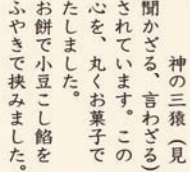 神の三猿（見
聞かざる、言わざる）
されています。この
心を、丸くお菓子で
たしました。
お餅で小豆こし餡を
ふやきで挟みました。